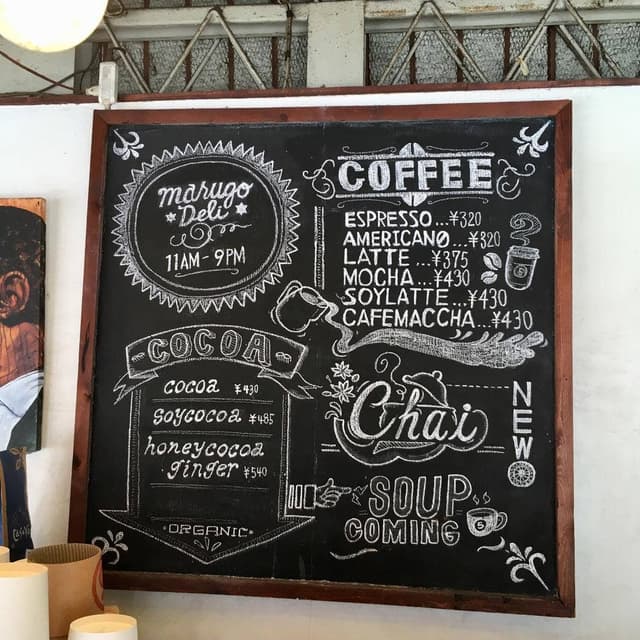 marugo
Deli
11AM - 9PM
COFFEE
ESPRESSO...¥320
AMERICANO...¥320
LATTE...¥375
MOCHA...¥430
SOYLATTE...¥430
CAFEMACCHA...¥430
COCOA
cocoa ¥430
soycocoa ¥485
honeycocoa
ginger ¥540
ORGANIC
Chai
NEW
SOUP
COMING